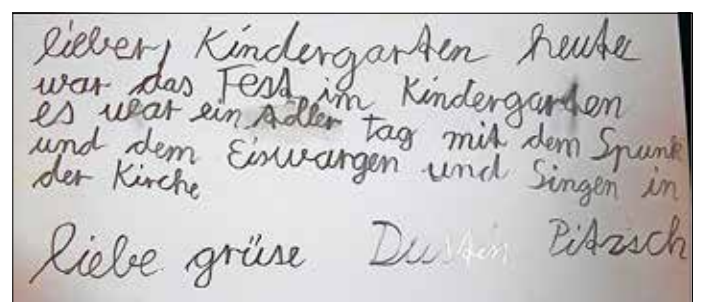 lieber, Kindergarten heute
war das Fest im Kindergarten
es war ein Adler tag mit dem Spunk
und dem Eiswargen und Singen in
der Kirche
liebe grüse Dustin Pitzsch